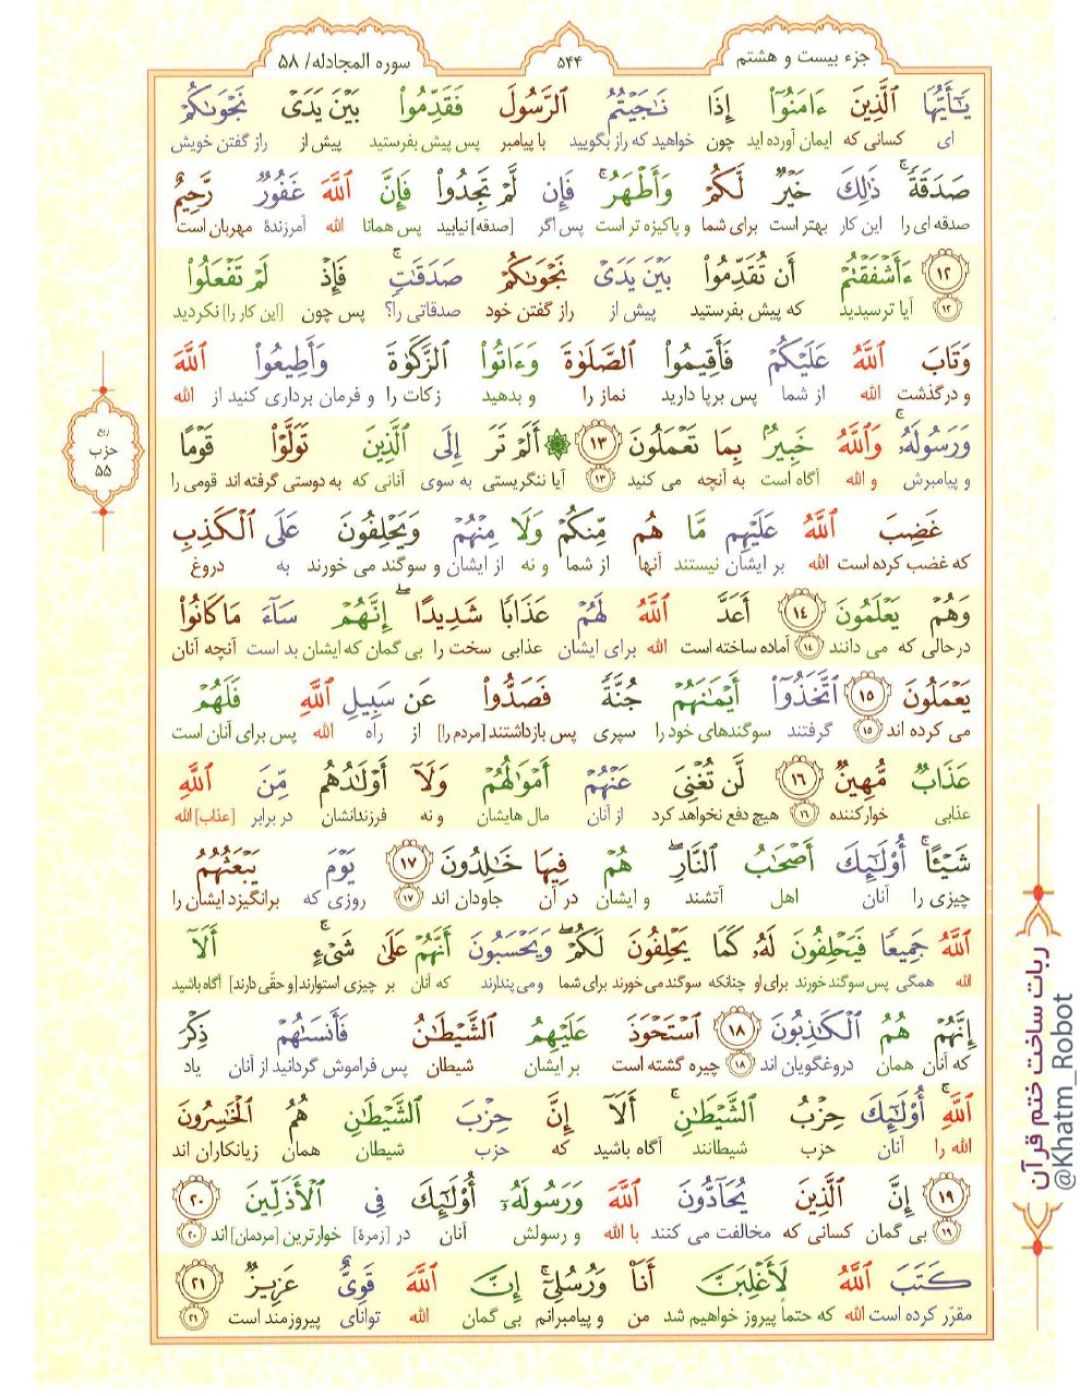 جزء بیست و هشتم
۵۴۴
سوره المجادله/ ۵۸
يَـٰٓأَيُّهَا ٱلَّذِينَ ءَامَنُوٓا۟ إِذَا نَـٰجَيْتُمُ ٱلرَّسُولَ فَقَدِّمُوا۟ بَيْنَ يَدَىْ نَجْوَىٰكُمْ
ای کسانی که ایمان آورده اید چون خواهید که راز بگویید با پیامبر پس پیش بفرستید پیش از راز گفتن خویش
صَدَقَةً ۚ ذَٰلِكَ خَيْرٌ لَّكُمْ وَأَطْهَرُ ۚ فَإِن لَّمْ تَجِدُوا۟ فَإِنَّ ٱللَّهَ غَفُورٌ رَّحِيمٌ
صدقه ای را این کار بهتر است برای شما و پاکیزه تر است پس اگر [صدقه] نیابید پس همانا الله آمرزندهٔ مهربان است
۱۲ ءَأَشْفَقْتُمْ أَن تُقَدِّمُوا۟ بَيْنَ يَدَىْ نَجْوَىٰكُمْ صَدَقَـٰتٍ ۚ فَإِذْ لَمْ تَفْعَلُوا۟
۱۲ آیا ترسیدید که پیش بفرستید پیش از راز گفتن خود صدقاتی را؟ پس چون [این کار را] نکردید
وَتَابَ ٱللَّهُ عَلَيْكُمْ فَأَقِيمُوا۟ ٱلصَّلَوٰةَ وَءَاتُوا۟ ٱلزَّكَوٰةَ وَأَطِيعُوا۟ ٱللَّهَ
و درگذشت الله از شما پس برپا دارید نماز را و بدهید زکات را و فرمان برداری کنید از الله
وَرَسُولَهُۥ ۚ وَٱللَّهُ خَبِيرٌۢ بِمَا تَعْمَلُونَ ۱۳ أَلَمْ تَرَ إِلَى ٱلَّذِينَ تَوَلَّوْا۟ قَوْمًا
و پیامبرش و الله آگاه است به آنچه می کنید ۱۳ آیا ننگریستی به سوی آنانی که به دوستی گرفته اند قومی را
غَضِبَ ٱللَّهُ عَلَيْهِم مَّا هُم مِّنكُمْ وَلَا مِنْهُمْ وَيَحْلِفُونَ عَلَى ٱلْكَذِبِ
که غضب کرده است الله بر ایشان نیستند آنها از شما و نه از ایشان و سوگند می خورند به دروغ
وَهُمْ يَعْلَمُونَ ۱۴ أَعَدَّ ٱللَّهُ لَهُمْ عَذَابًا شَدِيدًا ۖ إِنَّهُمْ سَآءَ مَا كَانُوا۟
درحالی که می دانند ۱۴ آماده ساخته است الله برای ایشان عذابی سخت را بی گمان که ایشان بد است آنچه آنان
يَعْمَلُونَ ۱۵ ٱتَّخَذُوٓا۟ أَيْمَـٰنَهُمْ جُنَّةً فَصَدُّوا۟ عَن سَبِيلِ ٱللَّهِ فَلَهُمْ
می کرده اند ۱۵ گرفتند سوگندهای خود را سپری پس بازداشتند [مردم را] از راه الله پس برای آنان است
عَذَابٌ مُّهِينٌ ۱۶ لَّن تُغْنِىَ عَنْهُمْ أَمْوَٰلُهُمْ وَلَآ أَوْلَـٰدُهُم مِّنَ ٱللَّهِ
عذابی خوارکننده ۱۶ هیچ دفع نخواهد کرد از آنان مال هایشان و نه فرزندانشان در برابر [عذاب] الله
شَيْـًٔا ۚ أُو۟لَـٰٓئِكَ أَصْحَـٰبُ ٱلنَّارِ ۖ هُمْ فِيهَا خَـٰلِدُونَ ۱۷ يَوْمَ يَبْعَثُهُمُ
چیزی را آنان اهل آتشند و ایشان در آن جاودان اند ۱۷ روزی که برانگیزد ایشان را
ٱللَّهُ جَمِيعًا فَيَحْلِفُونَ لَهُۥ كَمَا يَحْلِفُونَ لَكُمْ ۖ وَيَحْسَبُونَ أَنَّهُمْ عَلَىٰ شَىْءٍ ۚ أَلَآ
الله همگی پس سوگند خورند برای او چنانکه سوگند می خورند برای شما و می پندارند که آنان بر چیزی استوارند [و حقّی دارند] آگاه باشید
إِنَّهُمْ هُمُ ٱلْكَـٰذِبُونَ ۱۸ ٱسْتَحْوَذَ عَلَيْهِمُ ٱلشَّيْطَـٰنُ فَأَنسَىٰهُمْ ذِكْرَ
که آنان همان دروغگویان اند ۱۸ چیره گشته است بر ایشان شیطان پس فراموش گردانید از آنان یاد
ٱللَّهِ ۚ أُو۟لَـٰٓئِكَ حِزْبُ ٱلشَّيْطَـٰنِ ۚ أَلَآ إِنَّ حِزْبَ ٱلشَّيْطَـٰنِ هُمُ ٱلْخَـٰسِرُونَ
الله را آنان حزب شیطانند آگاه باشید که حزب شیطان همان زیانکاران اند
۱۹ إِنَّ ٱلَّذِينَ يُحَآدُّونَ ٱللَّهَ وَرَسُولَهُۥٓ أُو۟لَـٰٓئِكَ فِى ٱلْأَذَلِّينَ ۲۰
۱۹ بی گمان کسانی که مخالفت می کنند با الله و رسولش آنان در [زمرهٔ] خوارترین [مردمان] اند ۲۰
كَتَبَ ٱللَّهُ لَأَغْلِبَنَّ أَنَا۠ وَرُسُلِىٓ ۚ إِنَّ ٱللَّهَ قَوِىٌّ عَزِيزٌ ۲۱
مقرّر کرده است الله که حتماً پیروز خواهیم شد من و پیامبرانم بی گمان الله توانای پیروزمند است ۲۱
ربع
حزب
۵۵
ربات ساخت ختم قرآن
@Khatm_Robot